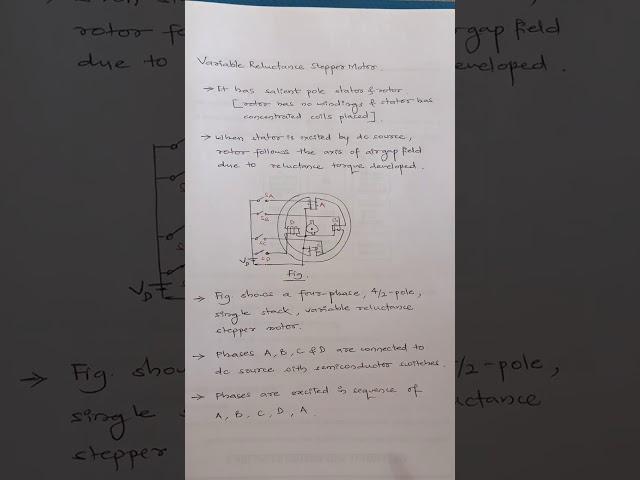 Variable Reluctance Stepper Motor.
→ It has salient pole stator & rotor.
[rotor has no windings & stator has
concentrated coils placed].
→ When stator is excited by dc source,
rotor follows the axis of airgap field
due to reluctance torque developed.
SA
A
SB
D
B
SC
SD
VD
Fig.
→ Fig. shows a four-phase, 4/2-pole,
single stack, variable reluctance
stepper motor.
→ Phases A, B, C & D are connected to
dc source with semiconductor switches.
→ Phases are excited in sequence of
A, B, C, D, A.